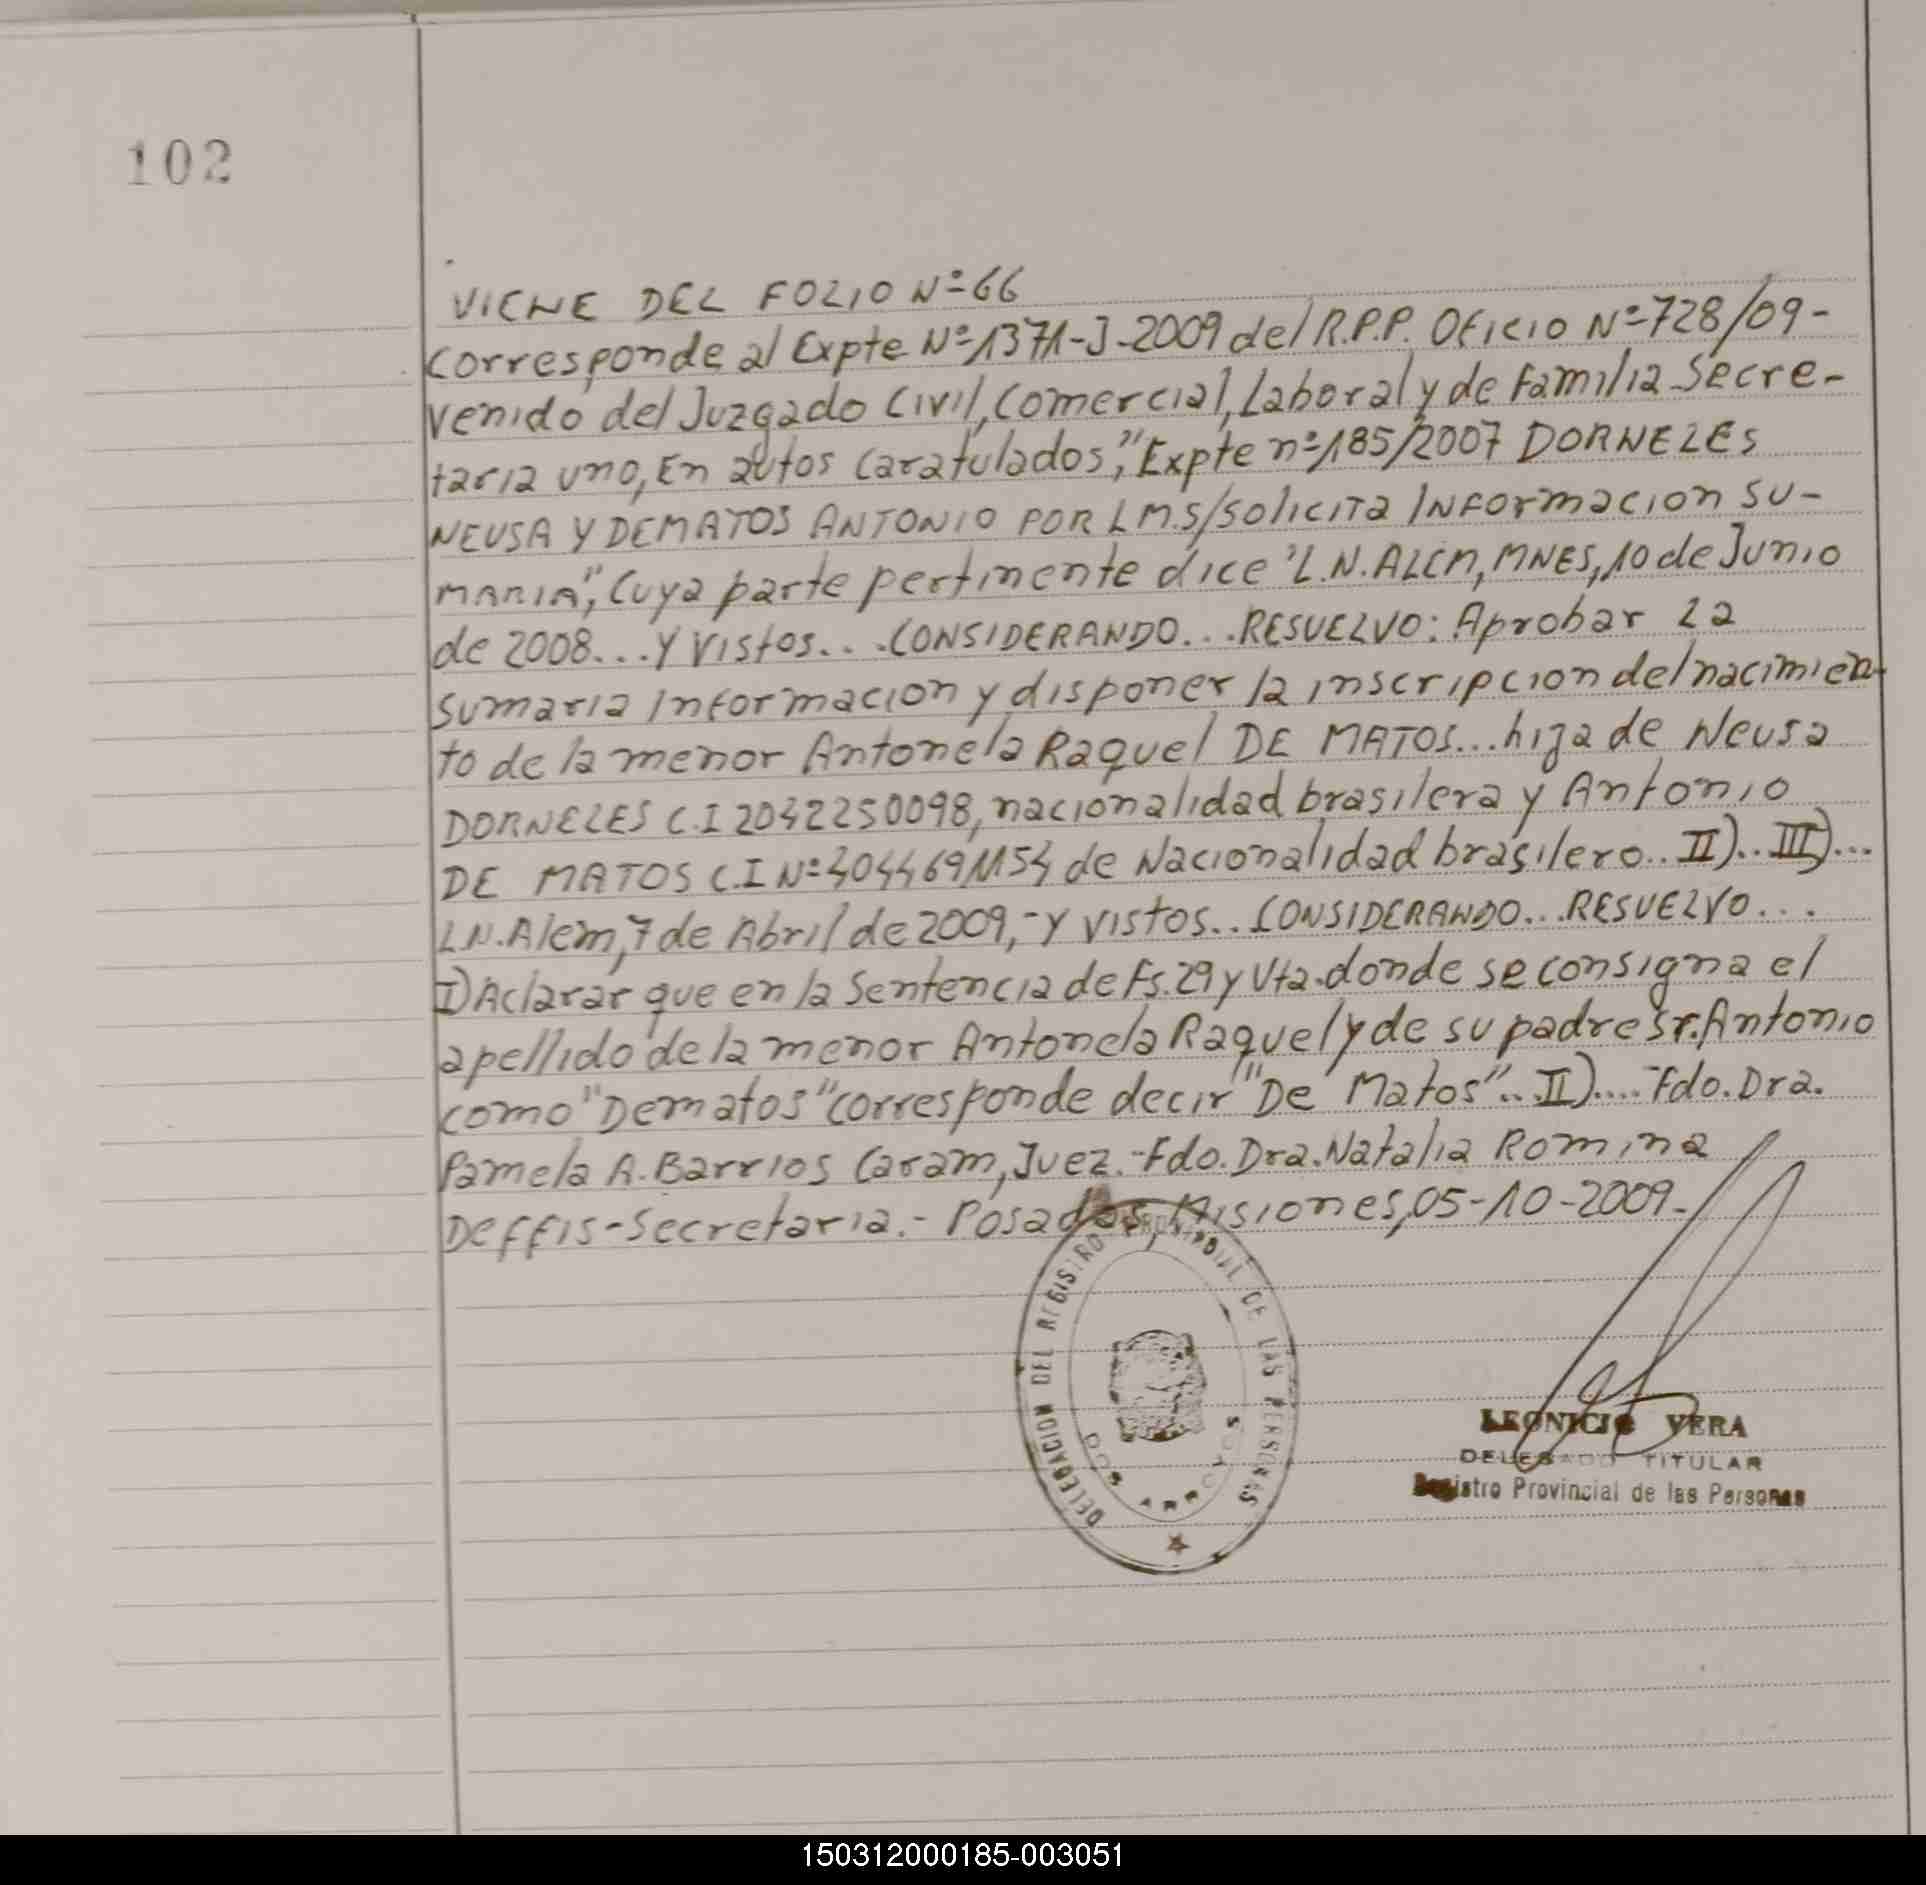 102
VIENE DEL FOLIO Nº 66
Corresponde al Expte Nº 1371-J-2009 del R.P.P. Oficio Nº 728/09-
venido del Juzgado Civil, Comercial, Laboral y de Familia Secre-
taria uno, En autos Caratulados," Expte nº 185/2007 DORNELES
NEUSA Y DEMATOS ANTONIO POR L.M.S/Solicita Informacion SU-
MARIA", Cuya parte pertinente dice "L.N.ALEM, MNES, 10 de Junio
de 2008... Y Vistos... CONSIDERANDO... RESUELVO: Aprobar La
Sumaria Informacion y disponer la inscripcion del nacimien-
to de la menor Antonela Raquel DE MATOS... hija de Neusa
DORNELES C.I 2042250098, nacionalidad brasilera y Antonio
DE MATOS C.I Nº 4044691154 de Nacionalidad brasilero.. II).. III)...
L.N.Alem, 7 de Abril de 2009,-Y Vistos.. CONSIDERANDO... RESUELVO...
I) Aclarar que en la Sentencia de Fs. 29 y Vta. donde se consigna el
apellido de la menor Antonela Raquel y de su padre Sr. Antonio
como "Dematos" corresponde decir "De Matos"... II).... Fdo. Dra.
Pamela A. Barrios Caram, Juez.-Fdo. Dra. Natalia Romina
Deffis-Secretaria.- Posadas, Misiones, 05-10-2009.-
DELEGACION DEL REGISTRO PROVINCIAL DE LAS PERSONAS
DOS ARROYOS
LEONICIO VERA
DELEGADO TITULAR
Registro Provincial de las Personas
150312000185-003051